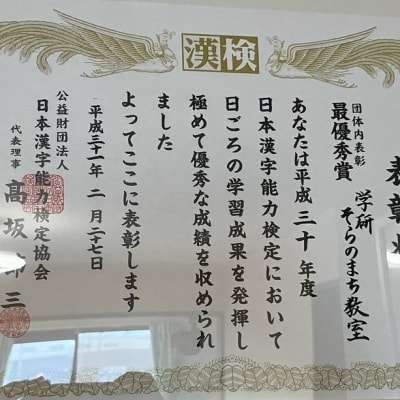 漢検
表彰状
団体内表彰
最優秀賞
学研
そらのまち教室
あなたは平成三十年度
日本漢字能力検定において
日ごろの学習成果を発揮し
極めて優秀な成績を収められ
ました
よってここに表彰します
平成三十一年二月二十七日
公益財団法人
日本漢字能力検定協会
代表理事 髙坂節三